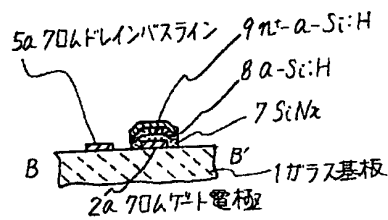 5a クロムドレインバスライン
9 n⁺-a-Si:H
8 a-Si:H
7 SiNx
B
B'
1 ガラス基板
2a クロムゲート電極